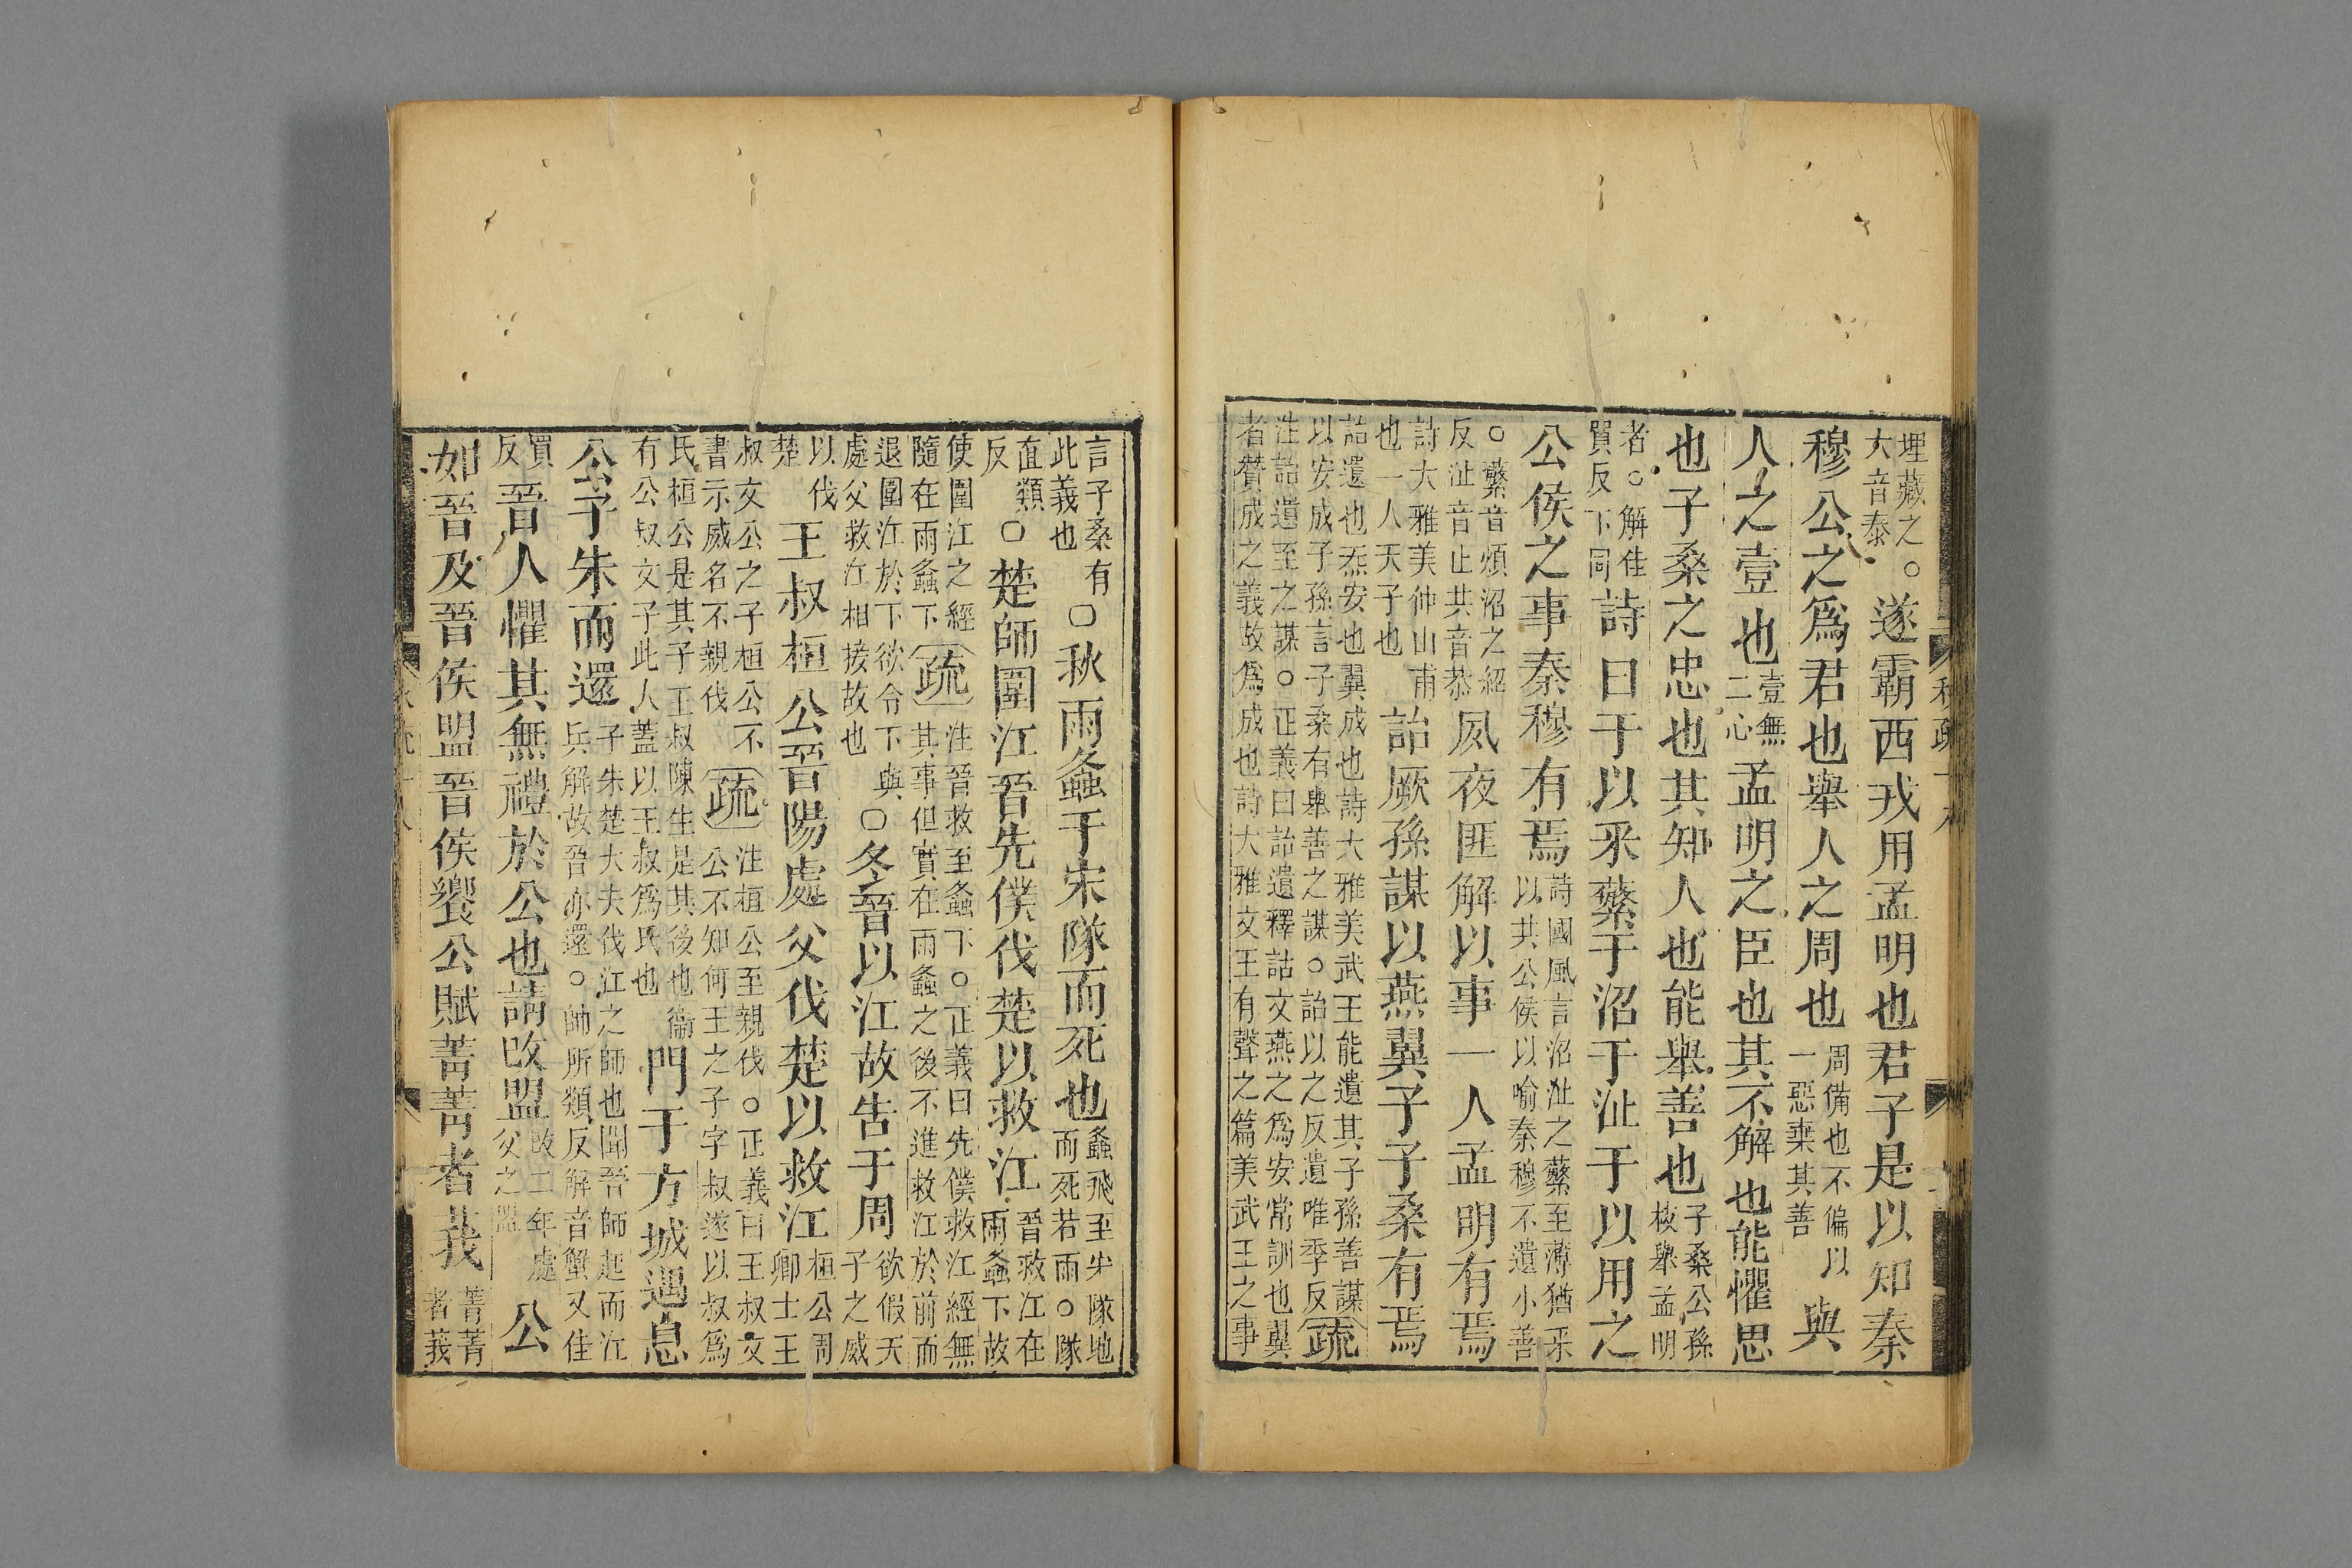 埋藏之○
大音泰
遂霸西戎用孟明也君子是以知秦
穆公之爲君也舉人之周也
周備也不偏以
一惡棄其善
與
人之壹也
壹無
二心
孟明之臣也其不解也能懼思
也子桑之忠也其知人也能舉善也
子桑公孫
枝舉孟明
者○解佳
買反下同
詩曰于以采蘩于沼于沚于以用之
公侯之事秦穆有焉
詩國風言沼沚之蘩至薄猶采
以共公侯以喻秦穆不遺小善
○蘩音煩沼之紹
反沚音止共音恭
夙夜匪解以事一人孟明有焉
詩大雅美仲山甫
也一人天子也
詒厥孫謀以燕翼子子桑有焉
詒遺也燕安也翼成也詩大雅美武王能遺其子孫善謀
以安成子孫言子桑有舉善之謀○詒以之反遺唯季反
疏
注詒遺至之謀○正義曰詒遺釋詁文燕之爲安常訓也翼
者贊成之義故爲成也詩大雅文王有聲之篇美武王之事
言子桑有
此義也
○秋雨螽于宋隊而死也
螽飛至宋隊地
而死若雨○隊
直類
反
○楚師圍江晉先僕伐楚以救江
晉救江在
雨螽下故
使圍江之經
隨在雨螽下
疏
注晉救至螽下○正義曰先僕救江經無
其事但實在雨螽之後不進救江於前而
退圍江於下欲令下與
處父救江相接故也
○冬晉以江故告于周
欲假天
子之威
以伐
楚
王叔桓公晉陽處父伐楚以救江
桓公周
卿士王
叔文公之子桓公不
書示威名不親伐
疏
注桓公至親伐○正義曰王叔文
公不知何王之子字叔遂以叔爲
氏桓公是其子王叔陳生是其後也衞
有公叔文子此人蓋以王叔爲氏也
門于方城遇息
公子朱而還
子朱楚大夫伐江之師也聞晉師起而江
兵解故晉亦還○帥所類反解音蟹又佳
買
反
晉人懼其無禮於公也請改盟
改二年處
父之盟
公
如晉及晉侯盟晉侯饗公賦菁菁者莪
菁菁
者莪